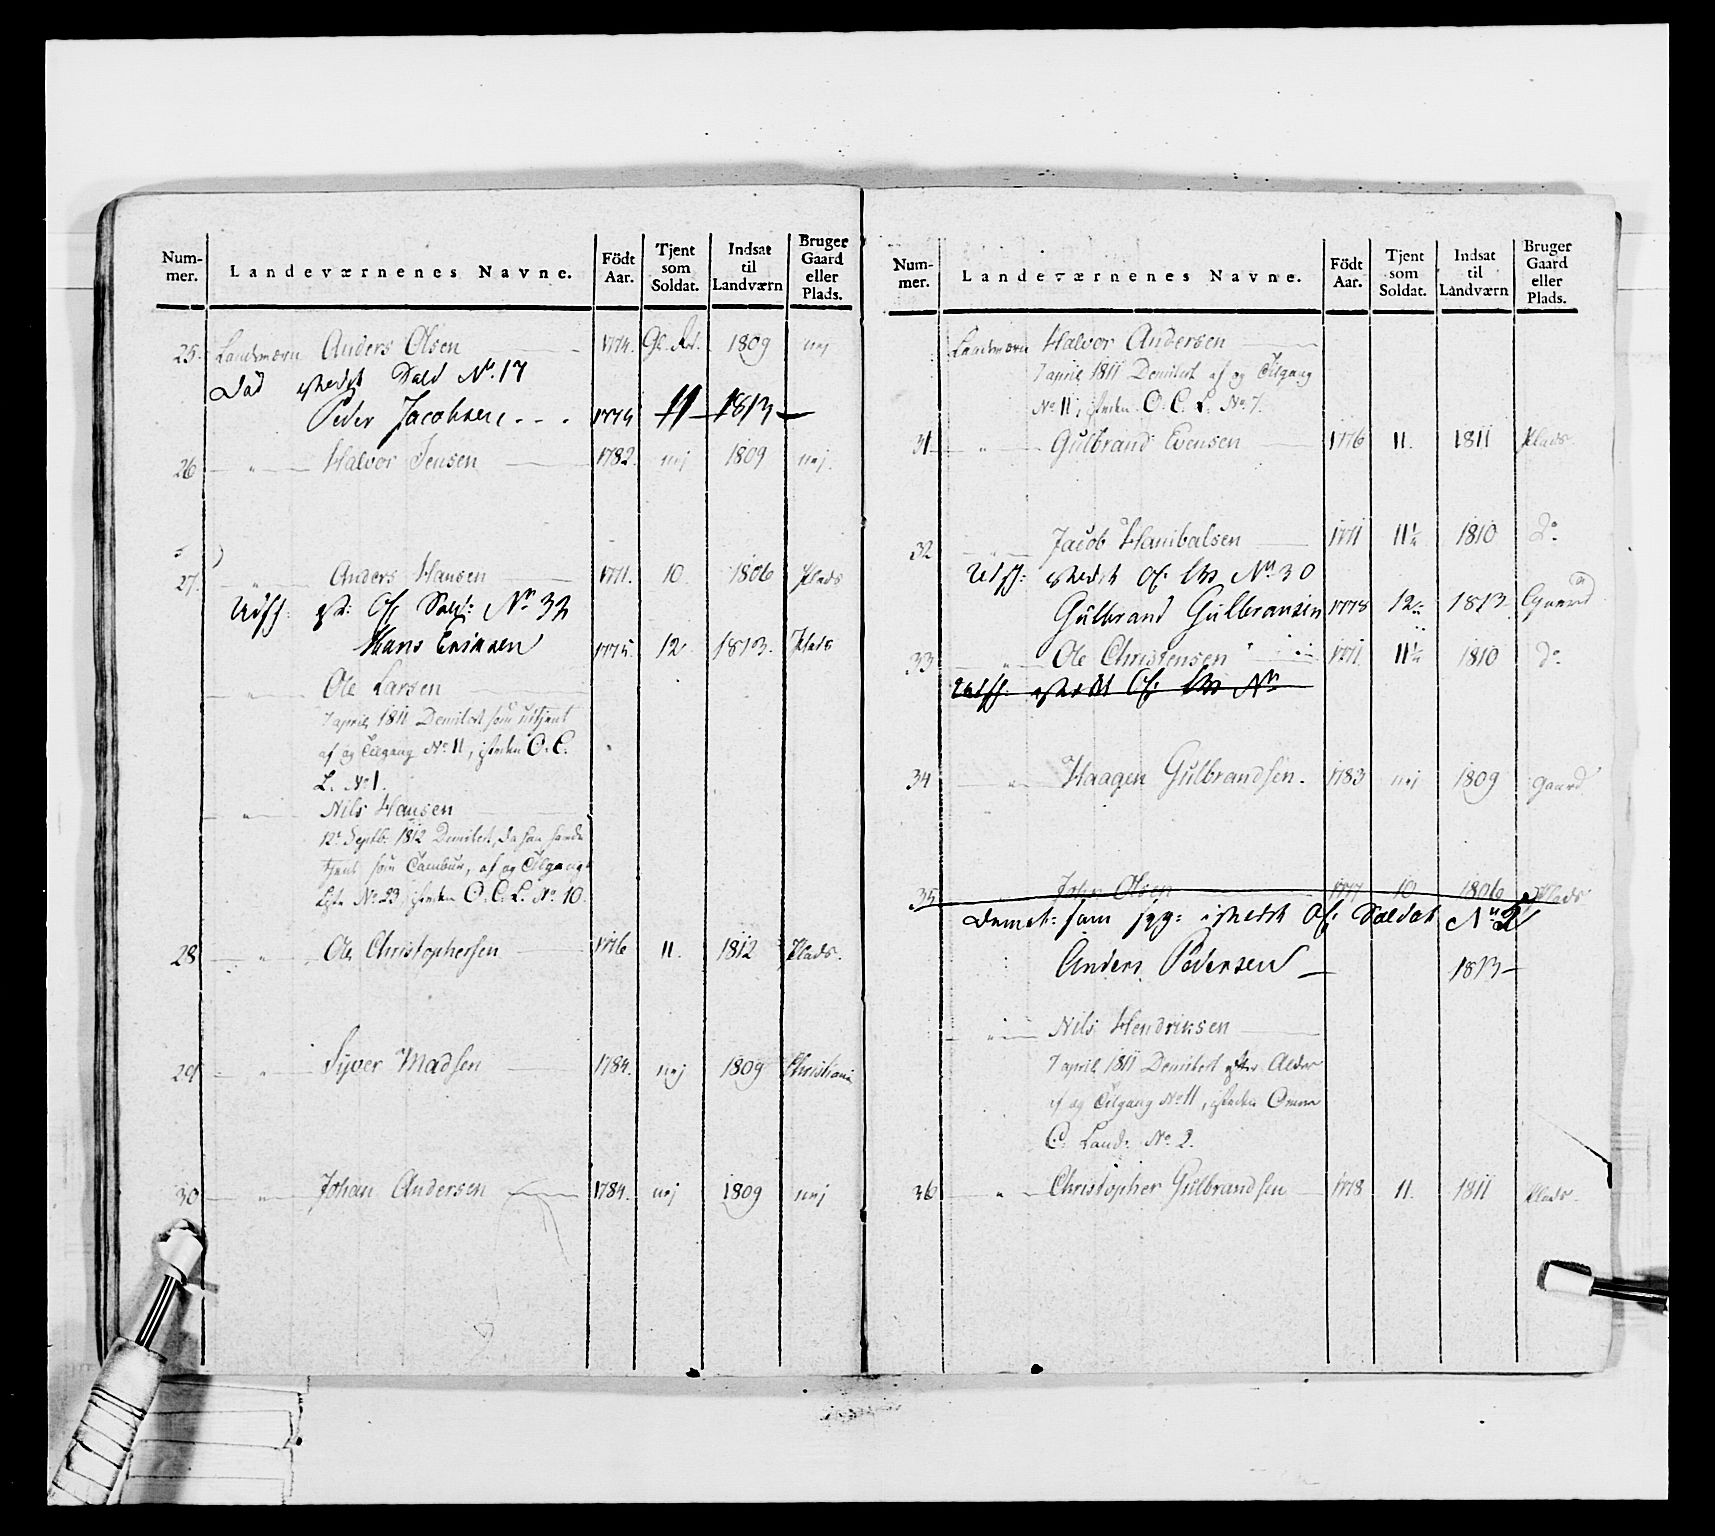 Num-
mer.
Landeværnenes Navne.
Födt
Aar.
Tjent
som
Soldat.
Indsat
til
Landværn
Bruger
Gaard
eller
Plads.
25. Landværn Anders Olsen 1774. 1809 nej
Död istedet Sold No. 17
Peder Jacobsen 1774 11 1813
26 " Halvor Jensen 1782. nej 1809 nej.
27. " Anders Hansen 1771. 10. 1806 Plads
Udsk: ist: Sold: No 33
Hans Ericksen 1775. 12. 1813. Plads
" Ole Larsen
7 april 1811 Demitert som uttjent
af og Tilgang No 11, isteden O. C.
L. No 1.
" Nils Hansen
12te Septb: 1812 Demitert, da han havde
tjent som Tambur, af og Tilgangs
Liste No 23, isteden O. C. L. No 10.
28 " Ole Christophersen 1776 11. 1812 Plads.
29 " Syver Madsen 1784. nej 1809 Christiania
30 " Johan Andersen 1784. nej 1809 nej
Num-
mer.
Landeværnenes Navne.
Födt
Aar.
Tjent
som
Soldat.
Indsat
til
Landværn
Bruger
Gaard
eller
Plads.
Landværn Halvor Andersen
7 april 1811 Demitert af og Tilgang
No 11, isteden O. C. L. No. 7.
31 " Gulbrand Evensen 1776 11. 1811 Plads.
32 " Jacob Hanibalsen 1771 11½ 1810 do.
Udsk: istedet No 30
Gulbrand Gulbransen 1778 12 1813 Gaard
33 " Ole Christensen 1771. 11½ 1810 do.
Udsk: istedet No
34 " Haagen Gulbrandsen. 1783 nej 1809 gaard
35 John Olsen 1777 10 1806 Plads
Demit: som istedet Soldat No 21
Anders Pedersen 1813
" Nils Hendriksen
7 april 1811 Demitert efter Alder
af og Tilgang No 11, isteden
C: Land: No 2.
36 " Christopher Gulbrandsen 1778 11. 1811 Plads.